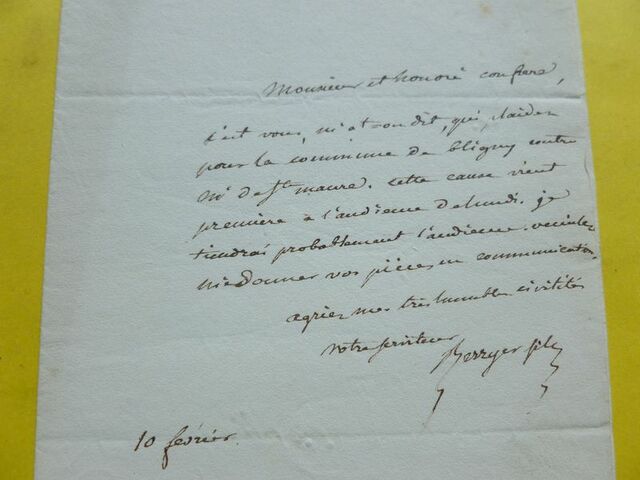 Monsieur et honoré confrere,
c'est vous, m'at-on dit, qui plaidez
pour la commune de bligny contre
Mr de Ste maure. cette cause vient
premiere a l'audience de lundi. je
tiendrai probablement l'audience. veuillez
me donner vos pièces en communication,
agréez mes très humbles civilités
votre serviteur
Berryer fils
10 février.